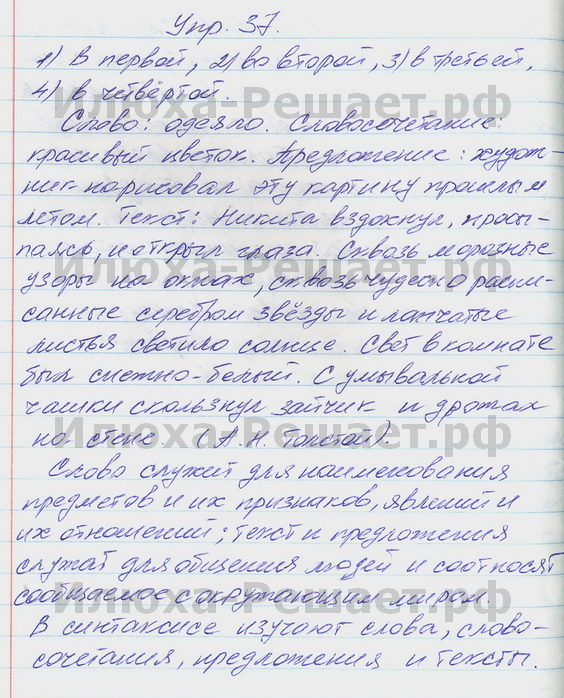 Упр. 37.
1) В первой, 2) во второй, 3) в третьей,
4) в четвёртой.
Слово: одеяло. Словосочетание:
красивый цветок. Предложение: худож-
ник нарисовал эту картину прошлым
летом. Текст: Никита вздохнул, просы-
паясь, и открыл глаза. Сквозь морозные
узоры на окнах, сквозь чудесно распи-
санные серебром звёзды и лапчатые
листья светило солнце. Свет в комнате
был снежно-белый. С умывальной
чашки скользнул зайчик и дрожал
на стене. (А. Н. Толстой).
Слово служит для наименования
предметов и их признаков, явлений и
их отношений; текст и предложения
служат для общения людей и соотносят
сообщаемое с окружающим миром.
В синтаксисе изучают слова, слово-
сочетания, предложения и тексты.
Илюха-Решает.рф
Илюха-Решает.рф
Илюха-Решает.рф
Илюха-Решает.рф